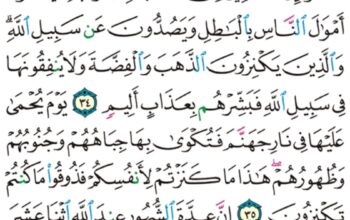 أَمْوَٰلَ ٱلنَّاسِ بِٱلْبَٰطِلِ وَيَصُدُّونَ عَن سَبِيلِ ٱللَّهِ ۗ
وَٱلَّذِينَ يَكْنِزُونَ ٱلذَّهَبَ وَٱلْفِضَّةَ وَلَا يُنفِقُونَهَا
فِى سَبِيلِ ٱللَّهِ فَبَشِّرْهُم بِعَذَابٍ أَلِيمٍ ٣٤ يَوْمَ يُحْمَىٰ
عَلَيْهَا فِى نَارِ جَهَنَّمَ فَتُكْوَىٰ بِهَا جِبَاهُهُمْ وَجُنُوبُهُمْ
وَظُهُورُهُمْ ۖ هَٰذَا مَا كَنَزْتُمْ لِأَنفُسِكُمْ فَذُوقُوا۟ مَا كُنتُمْ
تَكْنِزُونَ ٣٥ إِنَّ عِدَّةَ ٱلشُّهُورِ عِندَ ٱللَّهِ ٱثْنَا عَشَرَ